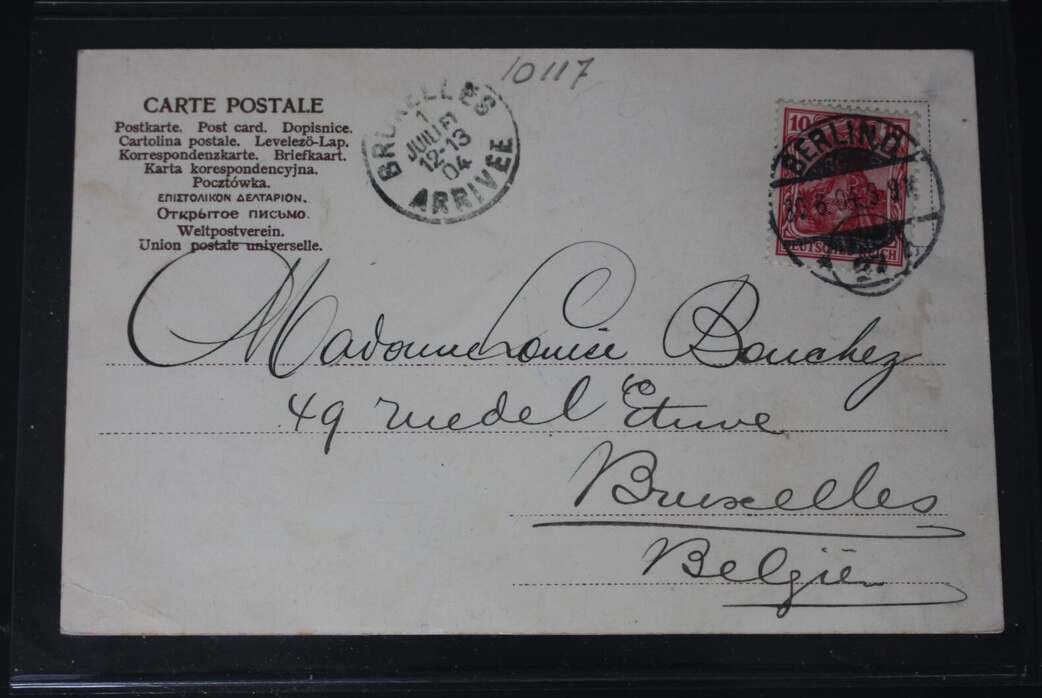 10117
CARTE POSTALE
Postkarte. Post card. Dopisnice.
Cartolina postale. Levelező-Lap.
Korrespondenzkarte. Briefkaart.
Karta korespondencyjna.
Pocztówka.
ΕΠΙΣΤΟΛΙΚΟΝ ΔΕΛΤΑΡΙΟΝ.
Открытое письмо.
Weltpostverein.
Union postale universelle.
BRUXELLES
1
JUILLET
12-13
04
ARRIVÉE
10
BERLIN
DEUTSCHES REICH
Madame Louise Bouchez
49 rue de l'Etuve
Bruxelles
België